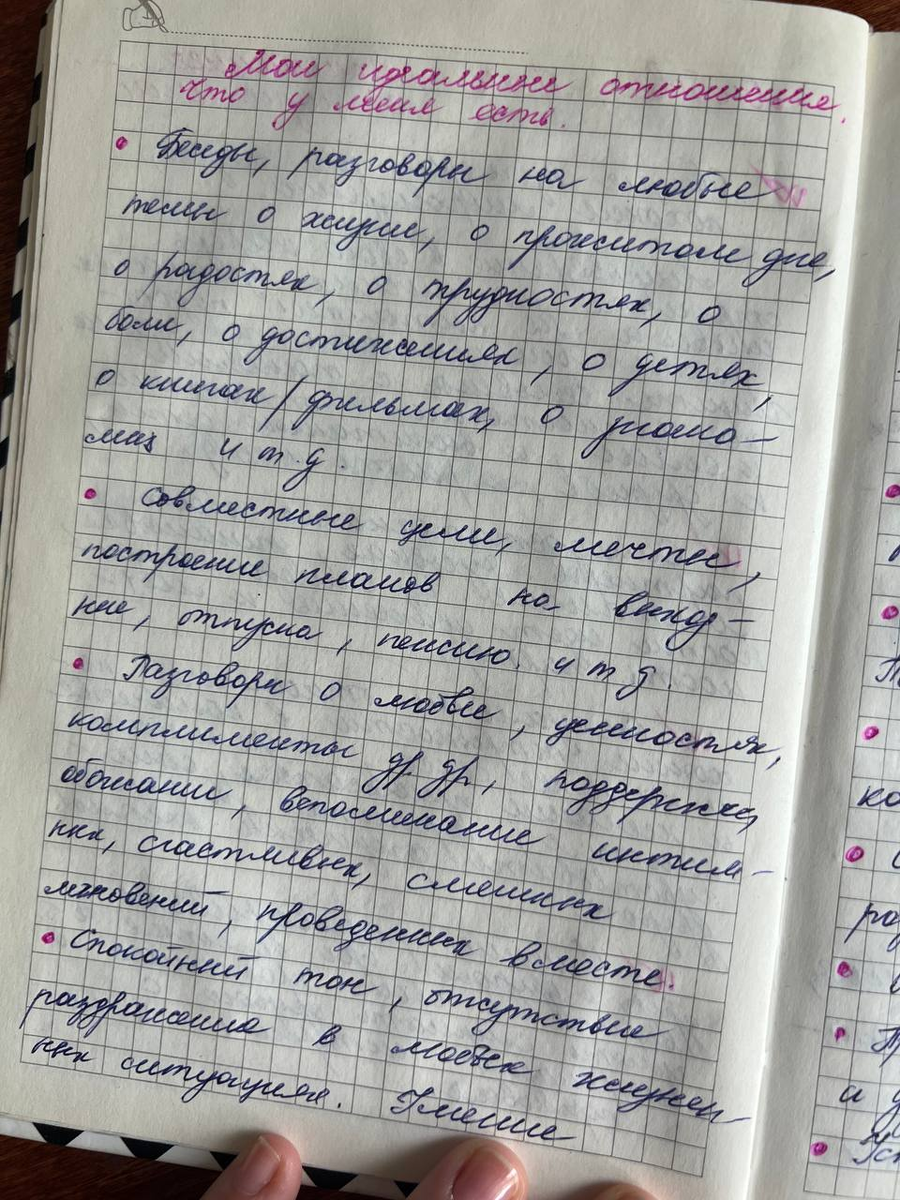 Мои идеальные отношения.
Что у меня есть.
• Беседы, разговоры на любые
темы о жизни, о прожитом дне,
о радостях, о трудностях, о
боли, о достижениях, о детях,
о книгах/фильмах, о знако-
мых и т.д.
• Совместные цели, мечты,
построение планов на выход-
ные, отпуска, пенсию. и т д.
• Разговоры о любви, ценностях,
комплименты др. др., поддержка,
обожание, вспоминание интим-
ных, счастливых, смешных
мгновений, проведенных вместе.
• Спокойный тон, отсутствие
раздражения в любых жизнен-
ных ситуациях. Умение